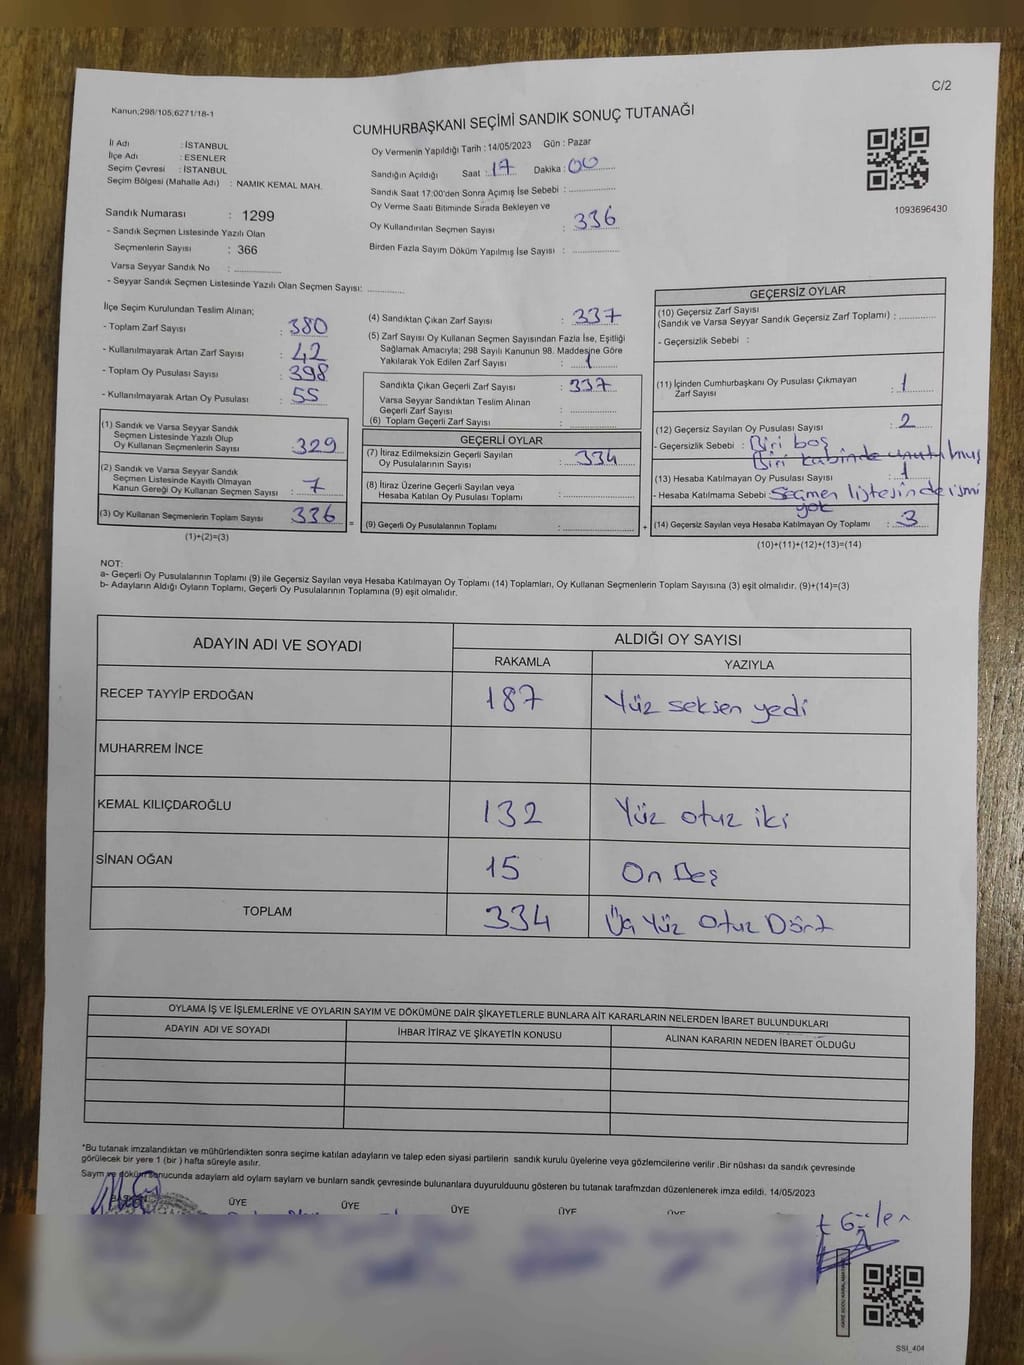 C/2
Kanun;298/105;6271/18-1
CUMHURBAŞKANI SEÇİMİ SANDIK SONUÇ TUTANAĞI
İl Adı : İSTANBUL
İlçe Adı : ESENLER
Seçim Çevresi : İSTANBUL
Seçim Bölgesi (Mahalle Adı) : NAMIK KEMAL MAH.
Sandık Numarası : 1299
- Sandık Seçmen Listesinde Yazılı Olan
Seçmenlerin Sayısı : 366
Varsa Seyyar Sandık No : ..............
- Seyyar Sandık Seçmen Listesinde Yazılı Olan Seçmen Sayısı: ..........
Oy Vermenin Yapıldığı Tarih : 14/05/2023 Gün : Pazar
Sandığın Açıldığı Saat : 17 Dakika : 00
Sandık Saat 17:00'den Sonra Açımış İse Sebebi : ..............
Oy Verme Saati Bitiminde Sırada Bekleyen ve
Oy Kullandırılan Seçmen Sayısı : 336
Birden Fazla Sayım Döküm Yapılmış İse Sayısı : ..............
1093696430
İlçe Seçim Kurulundan Teslim Alınan;
- Toplam Zarf Sayısı : 380
- Kullanılmayarak Artan Zarf Sayısı : 42
- Toplam Oy Pusulası Sayısı : 398
- Kullanılmayarak Artan Oy Pusulası : 55
(1) Sandık ve Varsa Seyyar Sandık
Seçmen Listesinde Yazılı Olup
Oy Kullanan Seçmenlerin Sayısı : 329
(2) Sandık ve Varsa Seyyar Sandık
Seçmen Listesinde Kayıtlı Olmayan
Kanun Gereği Oy Kullanan Seçmen Sayısı : 7
(3) Oy Kullanan Seçmenlerin Toplam Sayısı 336
(1)+(2)=(3)
=
(4) Sandıktan Çıkan Zarf Sayısı : 337
(5) Zarf Sayısı Oy Kullanan Seçmen Sayısından Fazla İse, Eşitliği
Sağlamak Amacıyla; 298 Sayılı Kanunun 98. Maddesine Göre
Yakılarak Yok Edilen Zarf Sayısı : 1
Sandıkta Çıkan Geçerli Zarf Sayısı : 337
Varsa Seyyar Sandıktan Teslim Alınan
Geçerli Zarf Sayısı : ..............
(6) Toplam Geçerli Zarf Sayısı : ..............
GEÇERLİ OYLAR
(7) İtiraz Edilmeksizin Geçerli Sayılan
Oy Pusulalarının Sayısı : 334
(8) İtiraz Üzerine Geçerli Sayılan veya
Hesaba Katılan Oy Pusulası Toplamı : ..............
(9) Geçerli Oy Pusulalarının Toplamı : ..............
+
GEÇERSİZ OYLAR
(10) Geçersiz Zarf Sayısı
(Sandık ve Varsa Seyyar Sandık Geçersiz Zarf Toplamı) : ..........
- Geçersizlik Sebebi :
(11) İçinden Cumhurbaşkanı Oy Pusulası Çıkmayan
Zarf Sayısı : 1
(12) Geçersiz Sayılan Oy Pusulası Sayısı : 2
- Geçersizlik Sebebi : Biri boş
Biri kabinde unutulmuş
(13) Hesaba Katılmayan Oy Pusulası Sayısı : 1
- Hesaba Katılmama Sebebi : Seçmen listesinde ismi
yok
(14) Geçersiz Sayılan veya Hesaba Katılmayan Oy Toplamı : 3
(10)+(11)+(12)+(13)=(14)
NOT:
a- Geçerli Oy Pusulalarının Toplamı (9) ile Geçersiz Sayılan veya Hesaba Katılmayan Oy Toplamı (14) Toplamları, Oy Kullanan Seçmenlerin Toplam Sayısına (3) eşit olmalıdır. (9)+(14)=(3)
b- Adayların Aldığı Oyların Toplamı, Geçerli Oy Pusulalarının Toplamına (9) eşit olmalıdır.
ADAYIN ADI VE SOYADI
ALDIĞI OY SAYISI
RAKAMLA YAZIYLA
RECEP TAYYİP ERDOĞAN 187 Yüz seksen yedi
MUHARREM İNCE
KEMAL KILIÇDAROĞLU 132 Yüz otuz iki
SİNAN OĞAN 15 On Beş
TOPLAM 334 Üç Yüz Otuz Dört
OYLAMA İŞ VE İŞLEMLERİNE VE OYLARIN SAYIM VE DÖKÜMÜNE DAİR ŞİKAYETLERLE BUNLARA AİT KARARLARIN NELERDEN İBARET BULUNDUKLARI
ADAYIN ADI VE SOYADI İHBAR İTİRAZ VE ŞİKAYETİN KONUSU ALINAN KARARIN NEDEN İBARET OLDUĞU
*Bu tutanak imzalandıktan ve mühürlendikten sonra seçime katılan adayların ve talep eden siyasi partilerin sandık kurulu üyelerine veya gözlemcilerine verilir .Bir nüshası da sandık çevresinde
görülecek bir yere 1 (bir ) hafta süreyle asılır.
Sayım ve döküm sonucunda adayların ald oyların sayları ve bunların sandk çevresinde bulunanlara duyurulduunu gösteren bu tutanak tarafmzdan düzenlenerek imza edildi. 14/05/2023
BAŞKAN ÜYE ÜYE ÜYE ÜYE ÜYE
SSİ_404